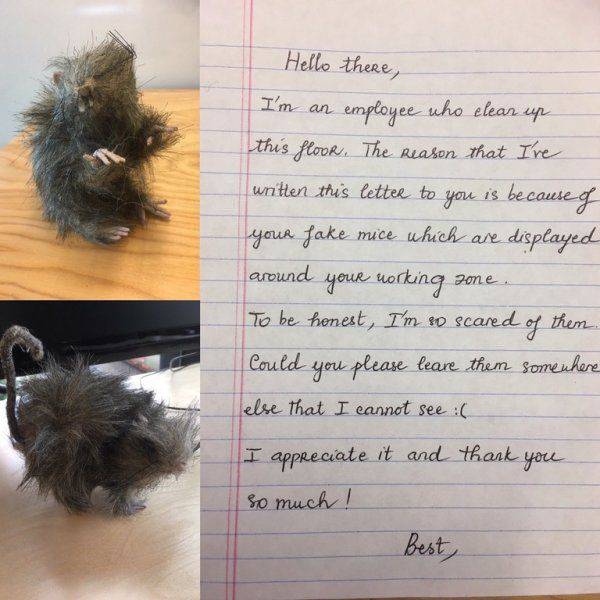 Hello there,
I'm an employee who clean up
this floor. The reason that I've
written this letter to you is because of
your fake mice which are displayed
around your working zone.
To be honest, I'm so scared of them.
Could you please leave them somewhere
else that I cannot see :(
I appreciate it and thank you
so much!
Best,